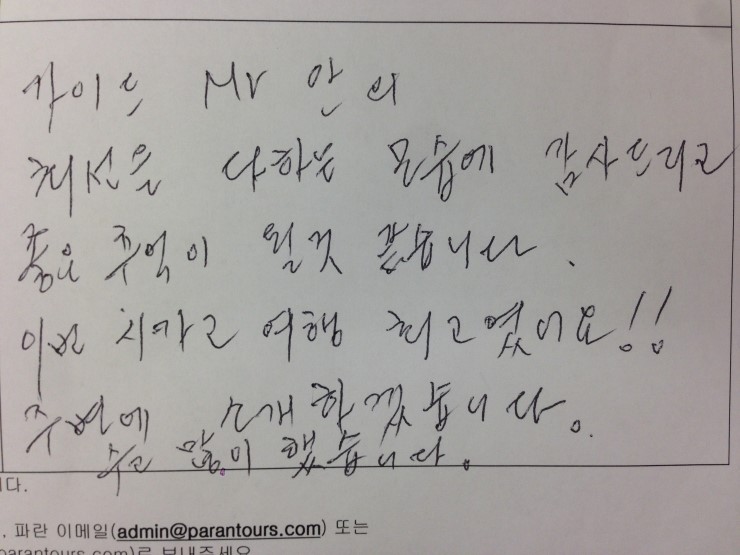 가이드 Mr 안의
최선을 다하는 모습에 감사드리고
좋은 추억이 될것 같습니다.
이번 시카고 여행 최고였어요!!
주변에 소개하겠습니다.
수고 많이 했습니다.
니다.
. 파란 이메일(admin@parantours.com) 또는
parantours.com)로 보내주세요